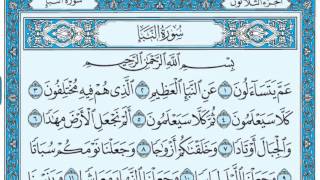 الجزء الثلاثون سورة النبأ
سورة النبإ
بسم الله الرحمن الرحيم
عم يتساءلون ١ عن النبإ العظيم ٢ الذي هم فيه مختلفون ٣
كلا سيعلمون ٤ ثم كلا سيعلمون ٥ ألم نجعل الأرض مهادا ٦
والجبال أوتادا ٧ وخلقناكم أزواجا ٨ وجعلنا نومكم سباتا ٩